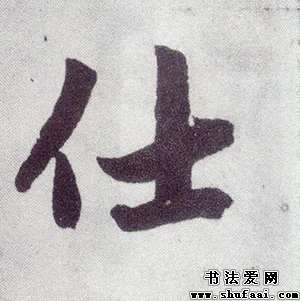 仕
书法爱网
www.shufaai.com